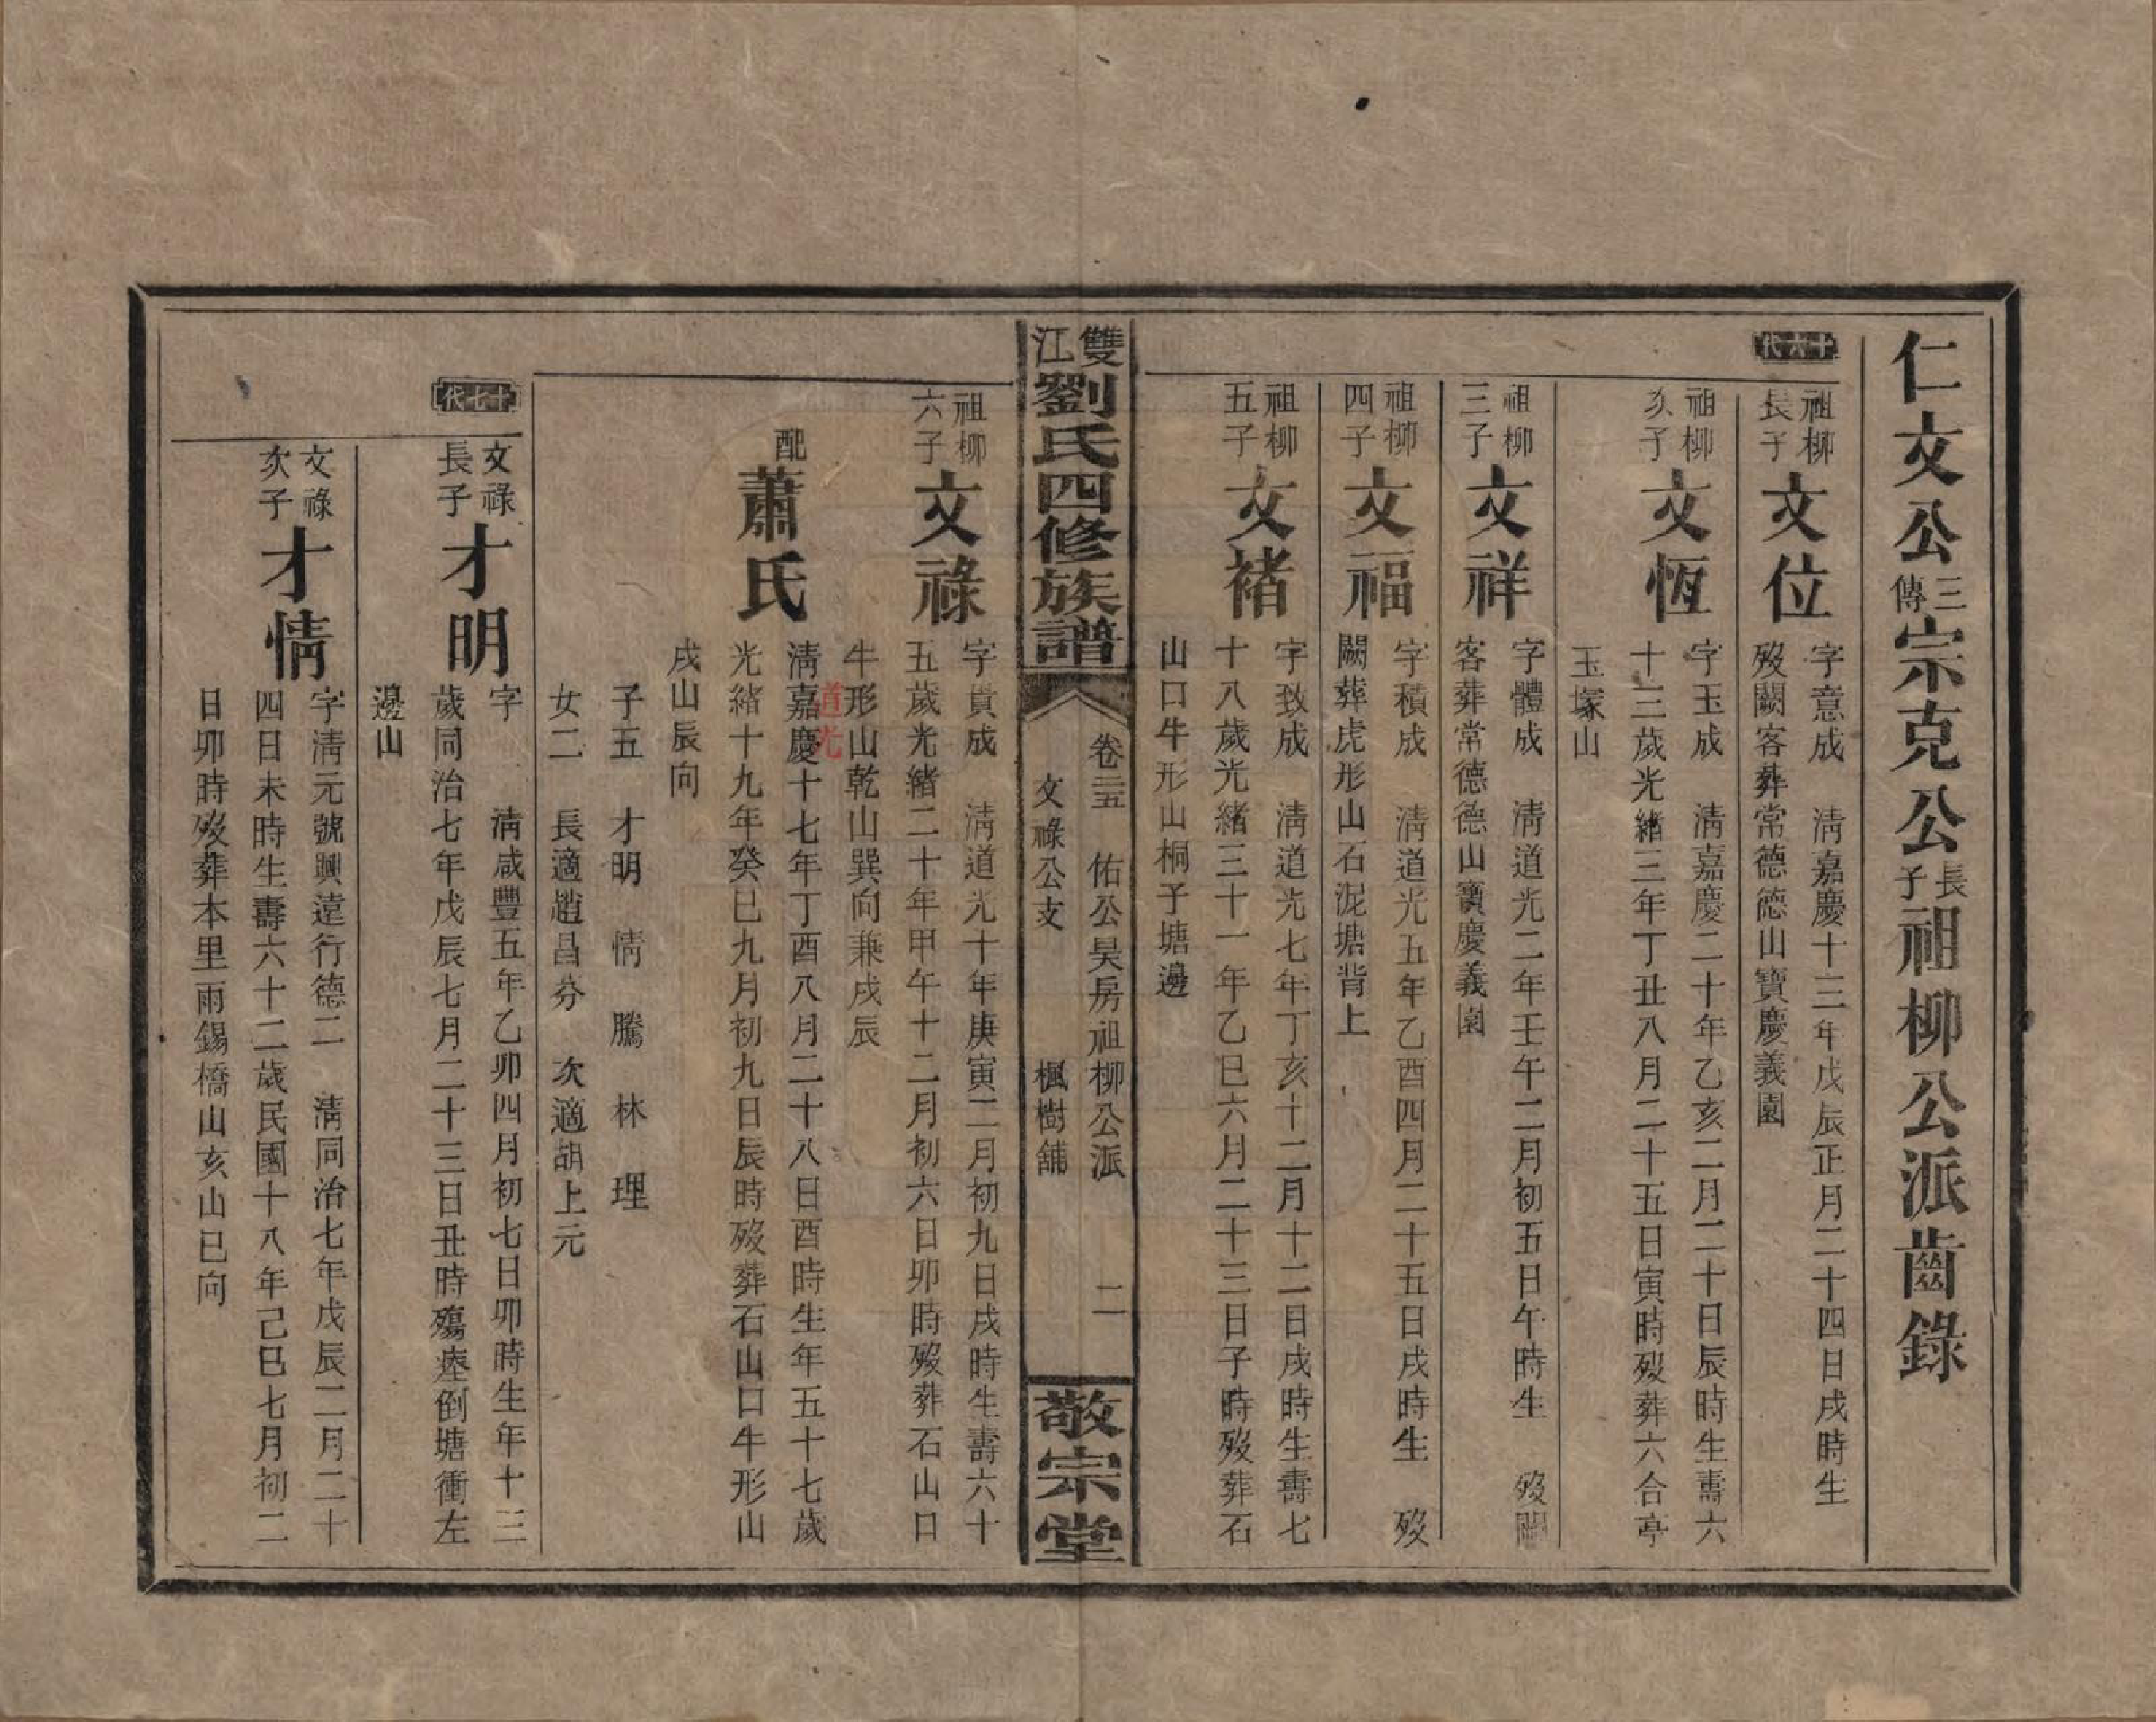 仁文公三傳宗克公長子祖柳公派齒錄
十六代
祖柳長子文位
字意成　清嘉慶十三年戊辰正月二十四日戌時生
歿闕客葬常德德山寶慶義園
祖柳次子文恆
字玉成　清嘉慶二十年乙亥二月二十日辰時生壽六
十三歲光緒三年丁丑八月二十五日寅時歿葬六合亭
玉塚山
祖柳三子文祥
字體成　清道光二年壬午二月初五日午時生　歿闕
客葬常德德山寶慶義園
祖柳四子文福
字積成　清道光五年乙酉四月二十五日戌時生　歿
闕葬虎形山石泥塘背上
祖柳五子文褚
字致成　清道光七年丁亥十二月十二日戌時生壽七
十八歲光緒三十一年乙巳六月二十三日子時歿葬石
山口牛形山桐子塘邊
雙江劉氏四修族譜
卷二五　佑公昊房祖柳公派　二
文祿公支　楓樹舖
敬宗堂
祖柳六子文祿
字貴成　清道光十年庚寅二月初九日戌時生壽六十
五歲光緒二十年甲午十二月初六日卯時歿葬石山口
牛形山乾山巽向兼戌辰
配蕭氏
道光
清嘉慶十七年丁酉八月二十八日酉時生年五十七歲
光緒十九年癸巳九月初九日辰時歿葬石山口牛形山
戌山辰向
子五　才明　情　騰　林　理
女二　長適趙昌芬　次適胡上元
十七代
文祿長子才明
字　　清咸豐五年乙卯四月初七日卯時生年十三
歲同治七年戊辰七月二十三日丑時殤瘞倒塘衝左
邊山
文祿次子才情
字清元號興遠行德二　清同治七年戊辰二月二十
四日未時生壽六十二歲民國十八年己巳七月初二
日卯時歿葬本里雨錫橋山亥山巳向